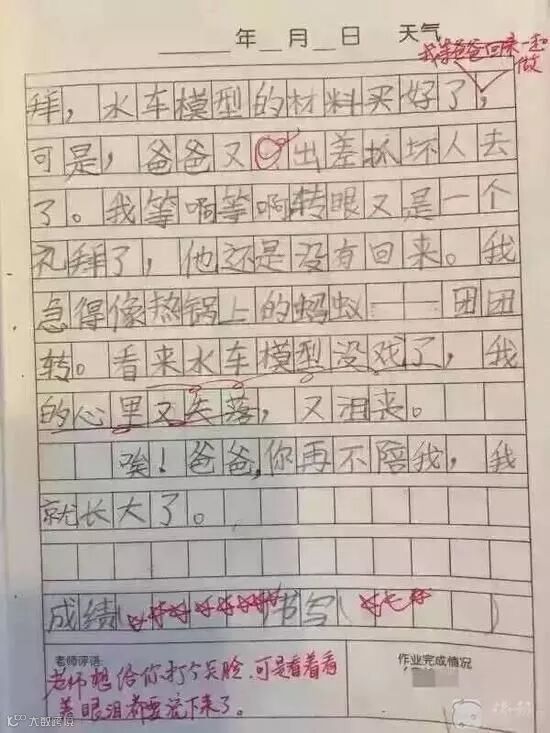 年 月 日 天气
我等爸爸回来一起做
拜，水车模型的材料买好了，
可是，爸爸又出差抓坏人去
了。我等啊等啊转眼又是一个
礼拜了，他还是没有回来。我
急得像热锅上的蚂蚁——团团
转。看来水车模型没戏了，我
的心里又失落，又沮丧。
唉！爸爸，你再不陪我，我
就长大了。
成绩( 书写( )
老师评语: 作业完成情况
老师想给你打个笑脸，可是看着看
着眼泪都要流下来了。
大数跨境